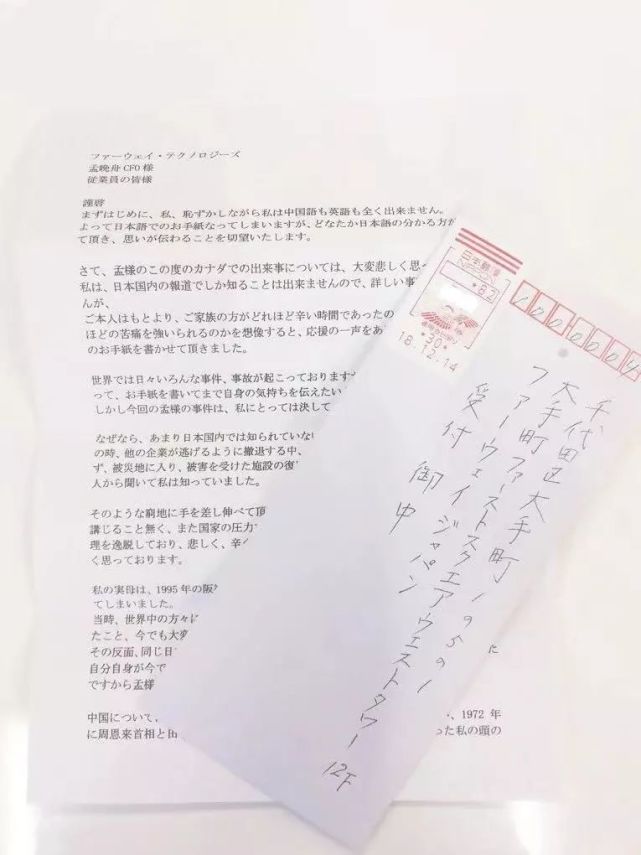 ファーウェイ・テクノロジーズ
孟晩舟 CFO 様
従業員の皆様
謹啓
まずはじめに、私、恥ずかしながら私は中国語も英語も全く出来ません。
よって日本語でのお手紙なってしまいますが、どなたか日本語の分かる方が
て頂き、思いが伝わることを切望いたします。
さて、孟様のこの度のカナダでの出来事については、大変悲しく思
私は、日本国内の報道でしか知ることは出来ませんので、詳しい事
んが、
ご本人はもとより、ご家族の方がどれほど辛い時間であったの
ほどの苦痛を強いられるのかを想像すると、応援の一声をあ
のお手紙を書かせて頂きました。
世界では日々いろんな事件、事故が起こっております
って、お手紙を書いてまで自身の気持ちを伝えたい
しかし今回の孟様の事件は、私にとっては決して
なぜなら、あまり日本国内では知られていない
の時、他の企業が逃げるように撤退する中、
ず、被災地に入り、被害を受けた施設の復
人から聞いて私は知っていました。
そのような窮地に手を差し伸べて頂
講じること無く、また国家の圧力
理を逸脱しており、悲しく、辛
く思っております。
私の実母は、1995 年の阪
てしまいました。
当時、世界中の方々に
たこと、今でも大変
その反面、同じ日
自分自身が今で
ですから孟様
中国について、
、1972 年
に周恩来首相と田
った私の頭の
日本郵便
NIPPON
82
30
18.12.14
1000004
千代田区大手町
大手町ファーストスクエアウェストタワー
12F
ファーウェイジャパン
受付 御中